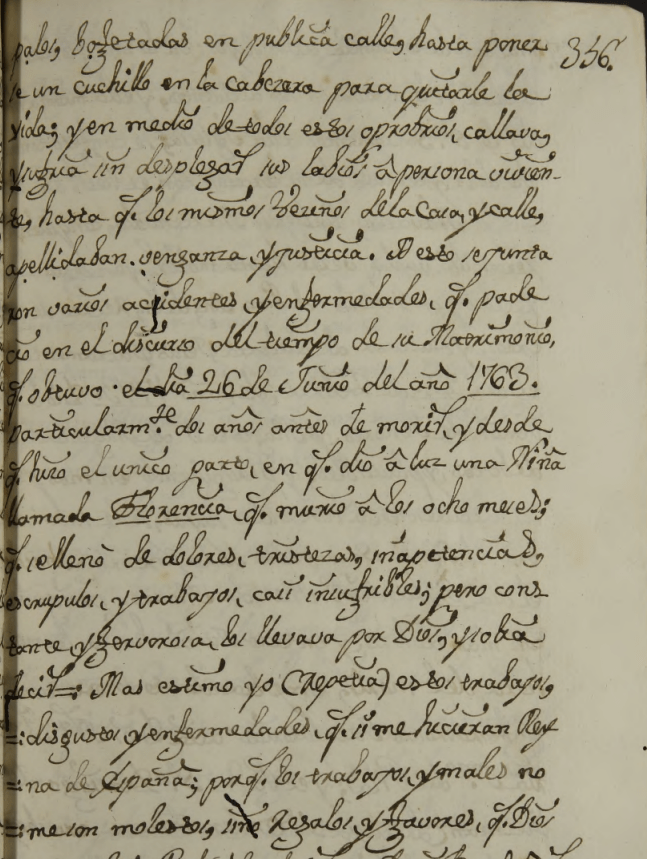 356.
palos, bofetadas en publica calle, hasta poner
le un cuchillo en la cabezera para quitarle la
vida; y en medio de todos estos oprobrios, callava,
y sufria sin desplegar sus labios â persona vivien-
te, hasta q.e los mismos vezinos de la Casa, y calle,
apellidaban venganza, y justicia. A esto se junta
ron varios accidentes, y enfermedades, q.e pade
cio en el discurso del tiempo de su Matrimonio,
q.e obtuvo el dia 26 de Junio del año 1763.
particularm.te dos años antes de morir, y desde
q.e hizo el unico parto, en q.e dio â luz una Niña
llamada Florencia, q.e murio â los ocho meses;
q.e se llenò de dolores, tristezas, inapetencias,
escrupulos, y trabajos, casi insufribles; pero cons
tante, y fervorosa, los llevava por Dios, y solia
decir=: Mas estimo yo (repetia) estos trabajos,
=: disgustos, y enfermedades, q.e si me hicieran Rey
=: na de España; porq.e los trabajos, y males no
=: me son molestos, sino Regalos, y favores, q.e Dios